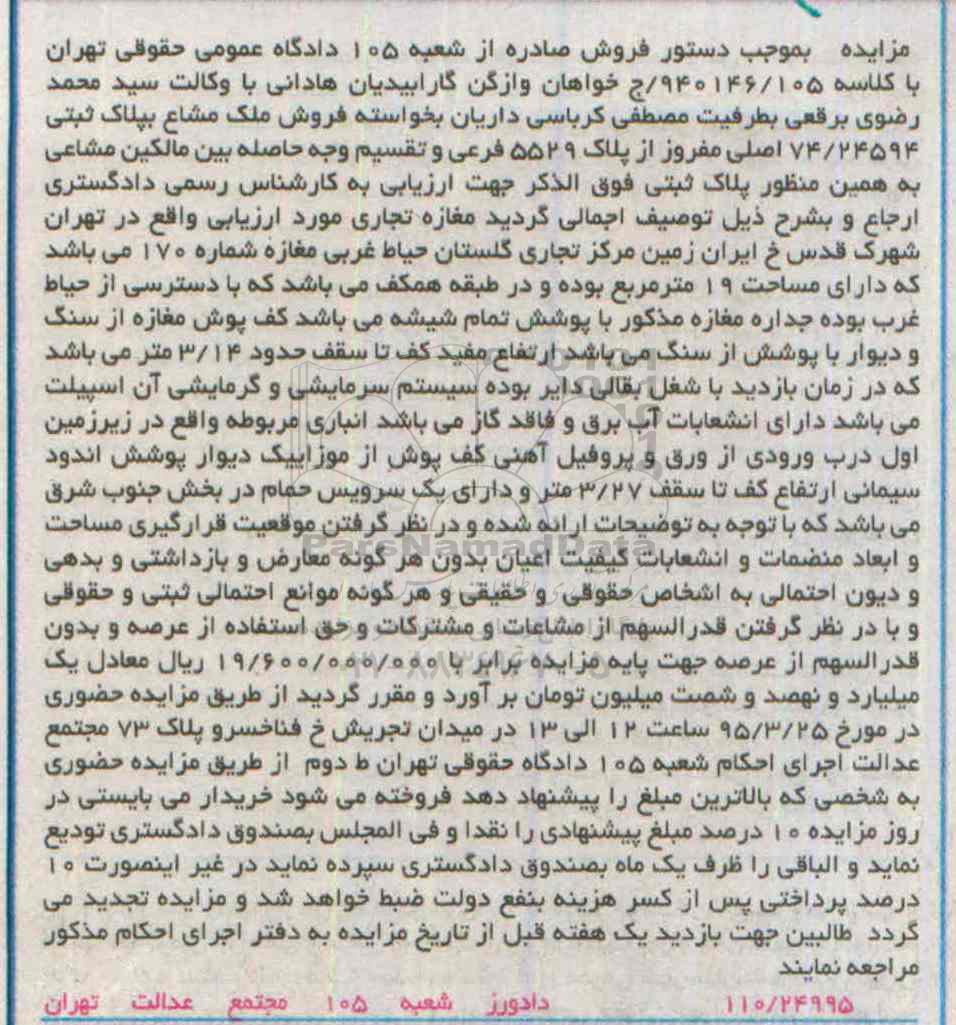 مزایده بموجب دستور فروش صادره از شعبه ۱۰۵ دادگاه عمومی حقوقی تهران
با کلاسه ۹۴۰۱۴۶/۱۰۵/ج خواهان وازگن گارابیدیان هادانی با وکالت سید محمد
رضوی برقعی بطرفیت مصطفی کرباسی داریان بخواسته فروش ملک مشاع بپلاک ثبتی
۷۴/۲۴۵۹۴ اصلی مفروز از پلاک ۵۵۲۹ فرعی و تقسیم وجه حاصله بین مالکین مشاعی
به همین منظور پلاک ثبتی فوق الذکر جهت ارزیابی به کارشناس رسمی دادگستری
ارجاع و بشرح ذیل توصیف اجمالی گردید مغازه تجاری مورد ارزیابی واقع در تهران
شهرک قدس خ ایران زمین مرکز تجاری گلستان حیاط غربی مغازه شماره ۱۷۰ می باشد
که دارای مساحت ۱۹ مترمربع بوده و در طبقه همکف می باشد که با دسترسی از حیاط
غرب بوده جداره مغازه مذکور با پوشش تمام شیشه می باشد کف پوش مغازه از سنگ
و دیوار با پوشش از سنگ می باشد ارتفاع مفید کف تا سقف حدود ۳/۱۴ متر می باشد
که در زمان بازدید با شغل بقالی دایر بوده سیستم سرمایشی و گرمایشی آن اسپیلت
می باشد دارای انشعابات آب برق و فاقد گاز می باشد انباری مربوطه واقع در زیرزمین
اول درب ورودی از ورق و پروفیل آهنی کف پوش از موزاییک دیوار پوشش اندود
سیمانی ارتفاع کف تا سقف ۳/۲۷ متر و دارای یک سرویس حمام در بخش جنوب شرق
می باشد که با توجه به توضیحات ارائه شده و در نظر گرفتن موقعیت قرارگیری مساحت
و ابعاد منضمات و انشعابات کیفیت اعیان بدون هر گونه معارض و بازداشتی و بدهی
و دیون احتمالی به اشخاص حقوقی و حقیقی و هر گونه موانع احتمالی ثبتی و حقوقی
و با در نظر گرفتن قدرالسهم از مشاعات و مشترکات و حق استفاده از عرصه و بدون
قدرالسهم از عرصه جهت پایه مزایده برابر با ۱۹/۶۰۰/۰۰۰/۰۰۰ ریال معادل یک
میلیارد و نهصد و شصت میلیون تومان بر آورد و مقرر گردید از طریق مزایده حضوری
در مورخ ۹۵/۳/۲۵ ساعت ۱۲ الی ۱۳ در میدان تجریش خ فناخسرو پلاک ۷۳ مجتمع
عدالت اجرای احکام شعبه ۱۰۵ دادگاه حقوقی تهران ط دوم از طریق مزایده حضوری
به شخصی که بالاترین مبلغ را پیشنهاد دهد فروخته می شود خریدار می بایستی در
روز مزایده ۱۰ درصد مبلغ پیشنهادی را نقدا و فی المجلس بصندوق دادگستری تودیع
نماید و الباقی را ظرف یک ماه بصندوق دادگستری سپرده نماید در غیر اینصورت ۱۰
درصد پرداختی پس از کسر هزینه بنفع دولت ضبط خواهد شد و مزایده تجدید می
گردد طالبین جهت بازدید یک هفته قبل از تاریخ مزایده به دفتر اجرای احکام مذکور
مراجعه نمایند
۱۱۰/۲۴۹۹۵ دادورز شعبه ۱۰۵ مجتمع عدالت تهران
ParsNamadData